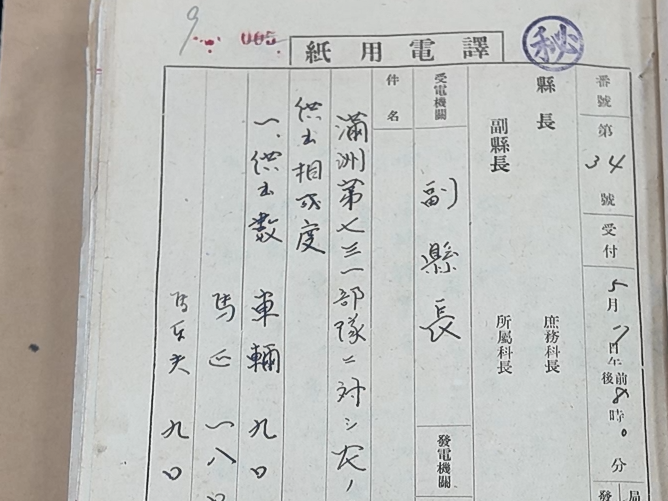 9
005
譯電用紙
秘
番號第34號受付5月7日午前後8時0分
縣長 庶務科長
副縣長 所屬科長
受電機關 副縣長 發電機關
件名
滿洲第七三一部隊ニ対シ
供出相成度
一、供出数 車輛 九〇
馬 一八〇
馬 夫 九〇
局
發